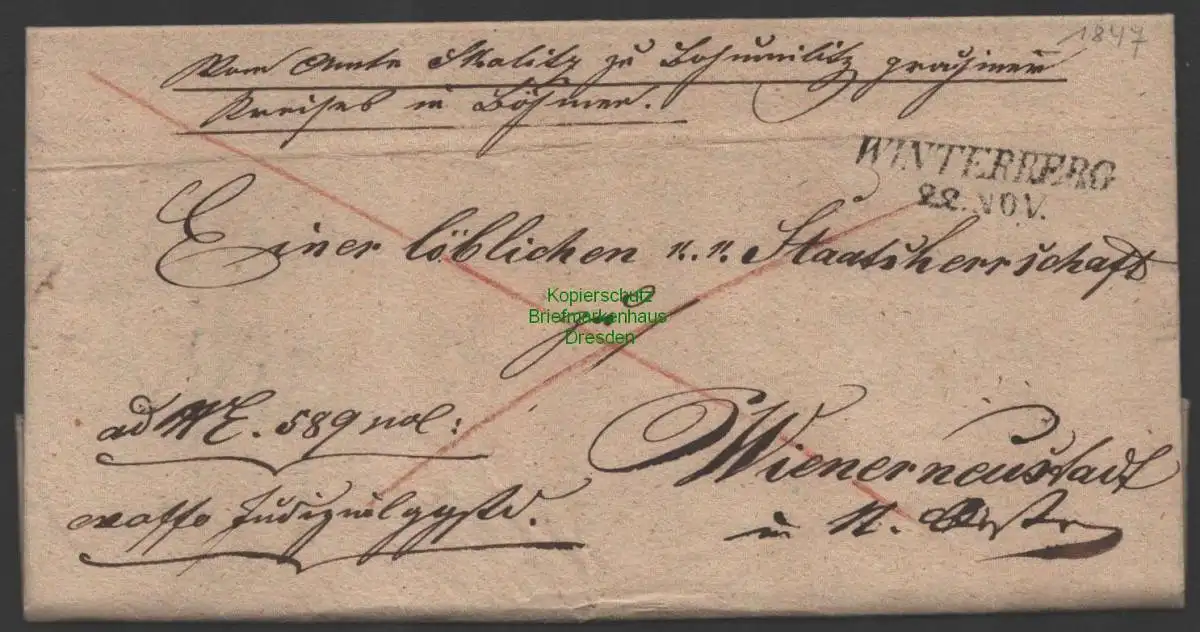 1847
Vom Amte Skalitz zu Bohumilitz prachiner
Kreises in Böhmen.
WINTERBERG
22. NOV.
Einer löblichen k. k. Staatsherrschaft
Kopierschutz
Briefmarkenhaus
Dresden
zu
ad NE. 589
Wienerneustadt
in N. Oestr